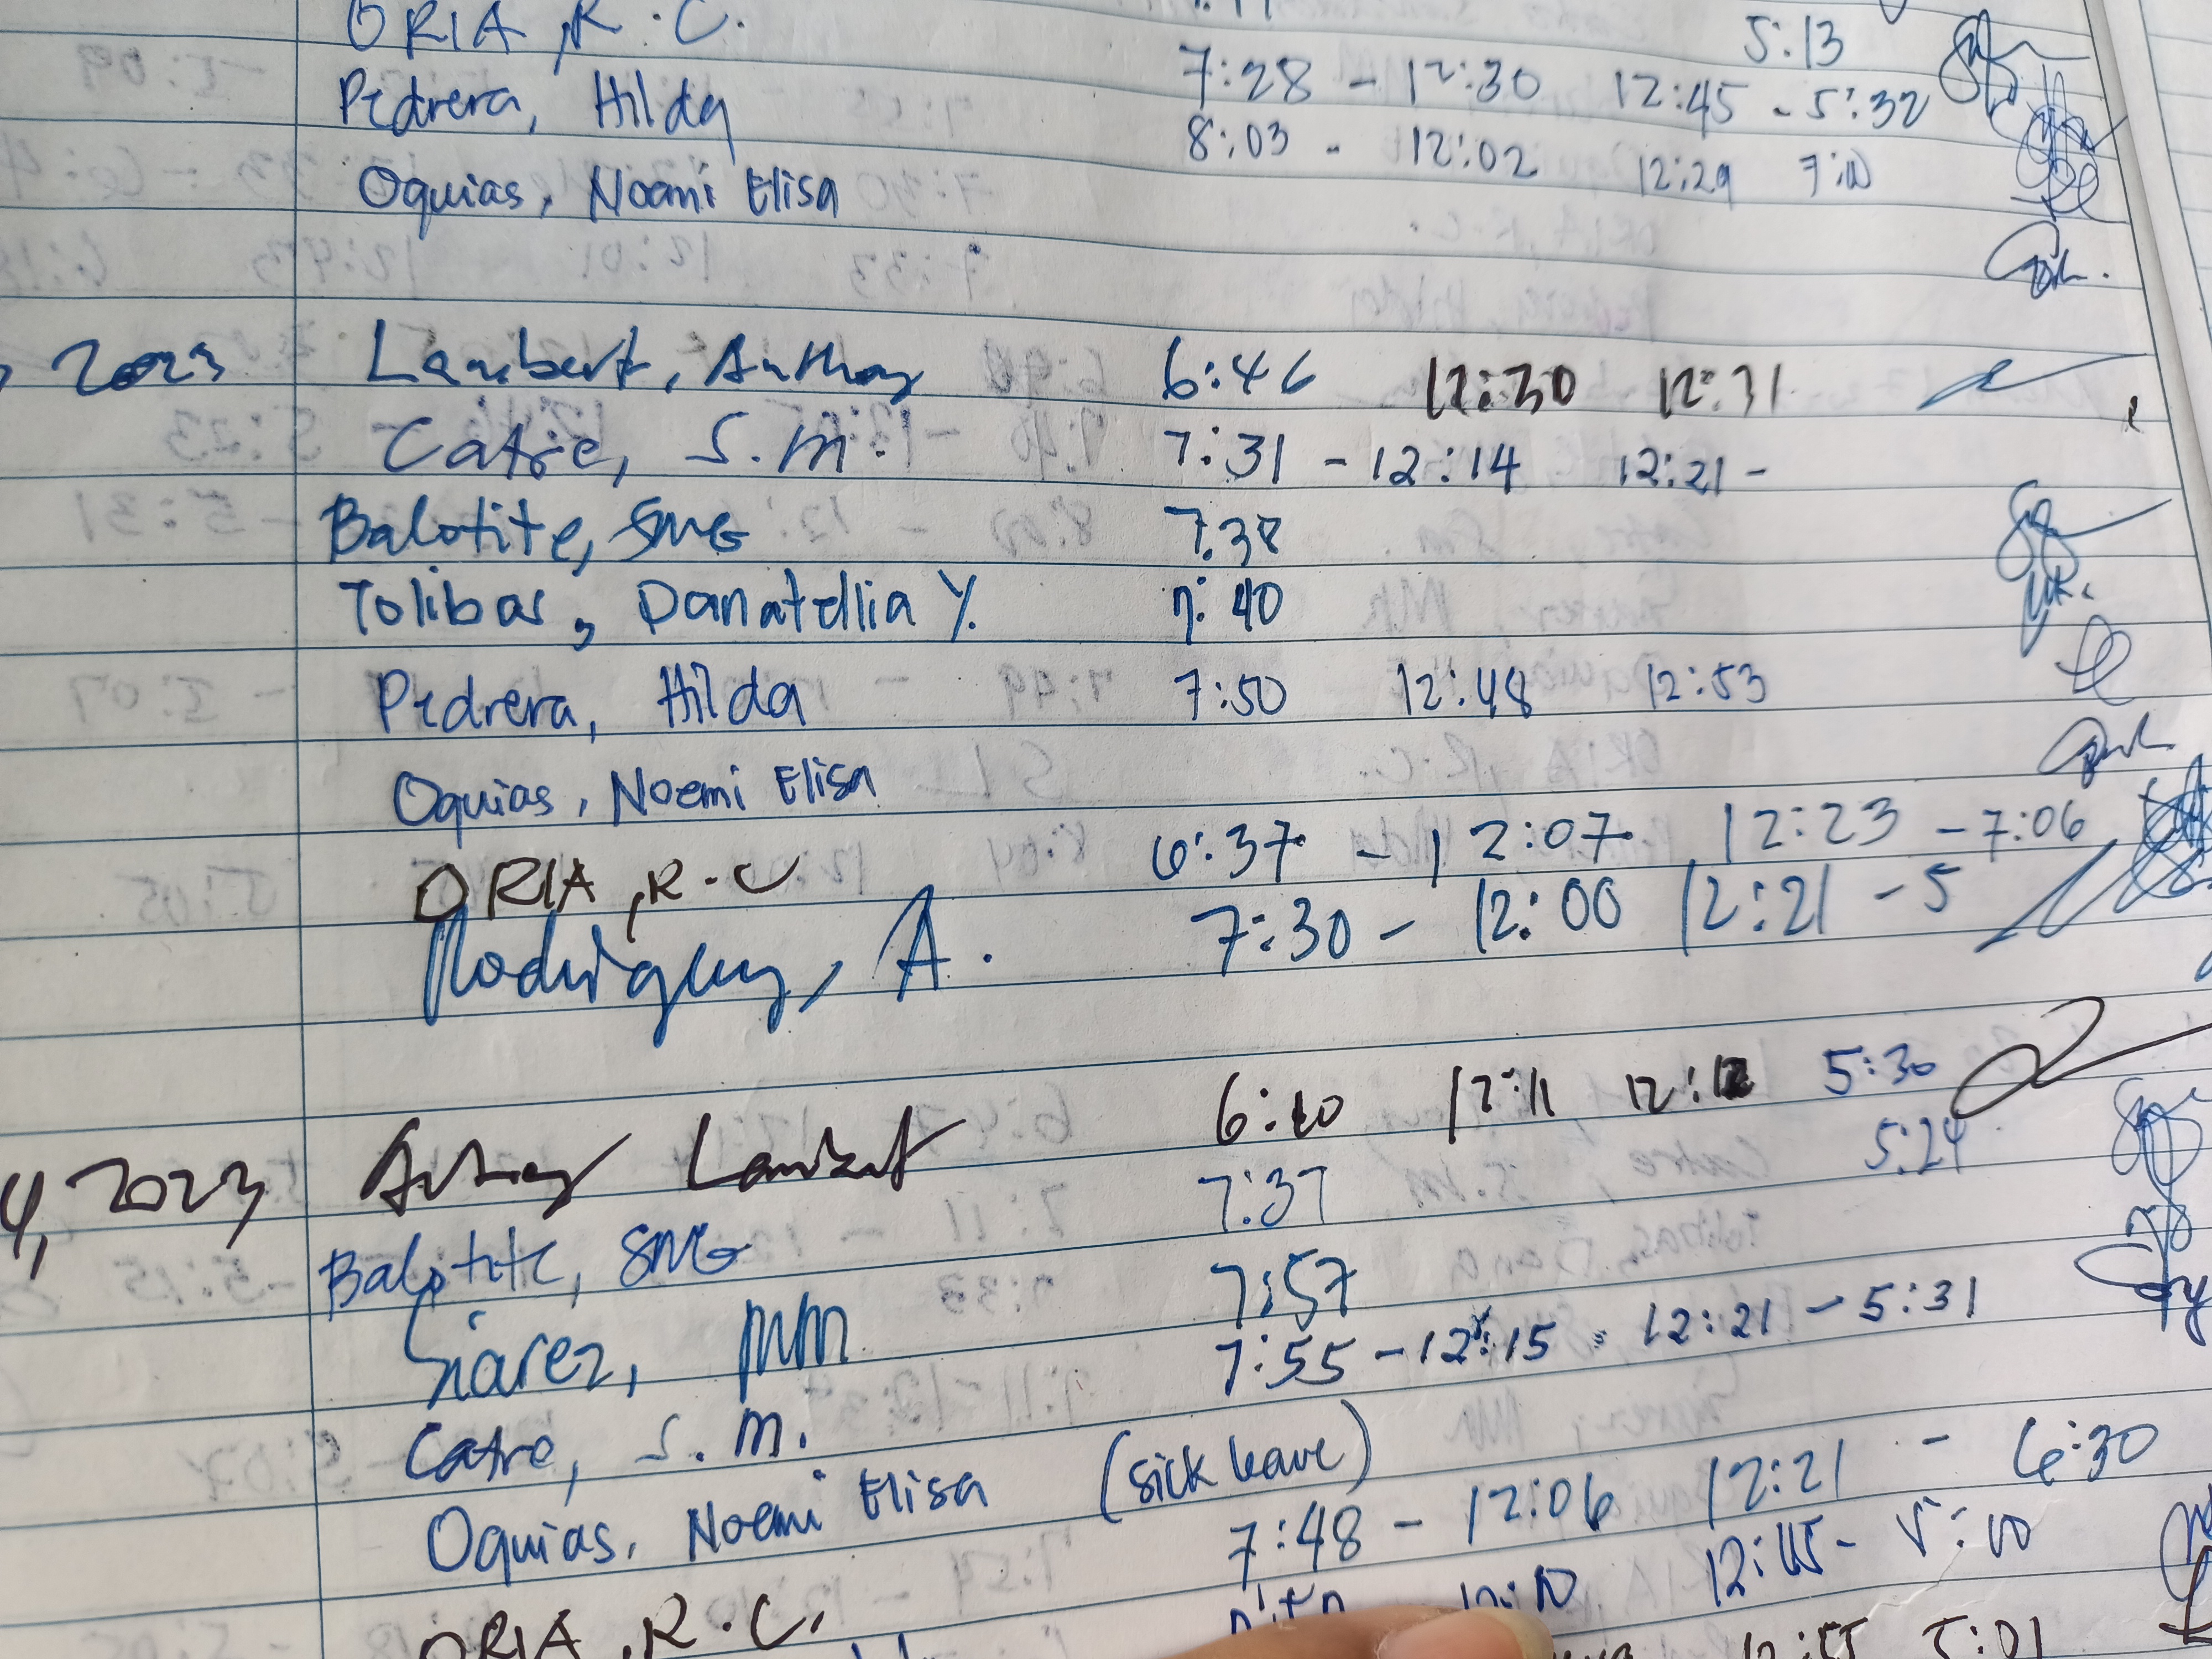 ORIA, R.C. 5:13
Pedrera, Hilda 7:28 - 12:30 12:45 - 5:32
Oquias, Noemi Elisa 8:03 - 12:02 12:29 7:10
, 2023 Lambert, Anthony 6:46 12:30 12:31
Catre, S.M. 7:31 - 12:14 12:21 -
Balotite, SMG 7:38
Tolibas, Danatellia Y. 7:40
Pedrera, Hilda 7:50 12:48 12:53
Oquias, Noemi Elisa
ORIA, R.C 6:37 - 12:07 12:23 - 7:06
Rodriguez, A. 7:30 - 12:00 12:21 - 5
4, 2023 Anthony Lambert 6:40 12:11 12:12 5:30
Balotite, SMG 7:37 5:24
Suarez, MM 7:57
Catre, S.M. 7:55 - 12:15 12:21 - 5:31
Oquias, Noemi Elisa (sick leave)
ORIA, R.C. 7:48 - 12:06 12:21 - 6:30
12:10 12:45 - 5:00
12:55 5:01